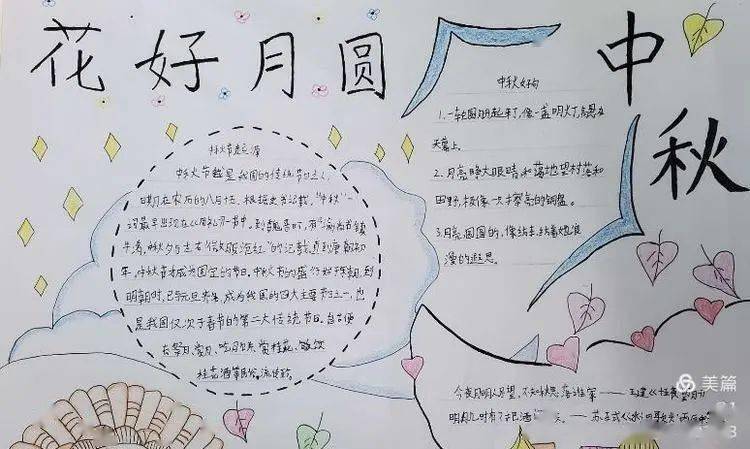 花好月圆 中秋
中秋节之源
中秋节是我国的传统节日之一，
日期在农历的八月。根据史书记载，"中秋"一
词最早出现在《周礼》一书中。到魏晋时，有"尚书镇
牛渚，中秋夕与左右微服泛江"的记载。直到唐朝初
年，中秋节才成为固定的节日。中秋节的盛行始于宋朝，到
明朝时，已与元旦齐名，成为我国的四大主要节日之一，也
是我国仅次于春节的第二大传统节日。自古便
有祭月、赏月、吃月饼、赏桂花、饮
桂花酒等民俗，流传
中秋好句
1.一轮圆月升起来了，像一盏明灯，高悬在
天幕上。
2.月亮睁大眼睛和蔼地望村落和
田野，极像一块擦亮的铜盘。
3.月亮圆圆的，像
漫的遐思。
今夜月明人尽望，不知秋思落谁家——王建《
明月几时有？把酒 天。——苏轼《水调歌头
美篇